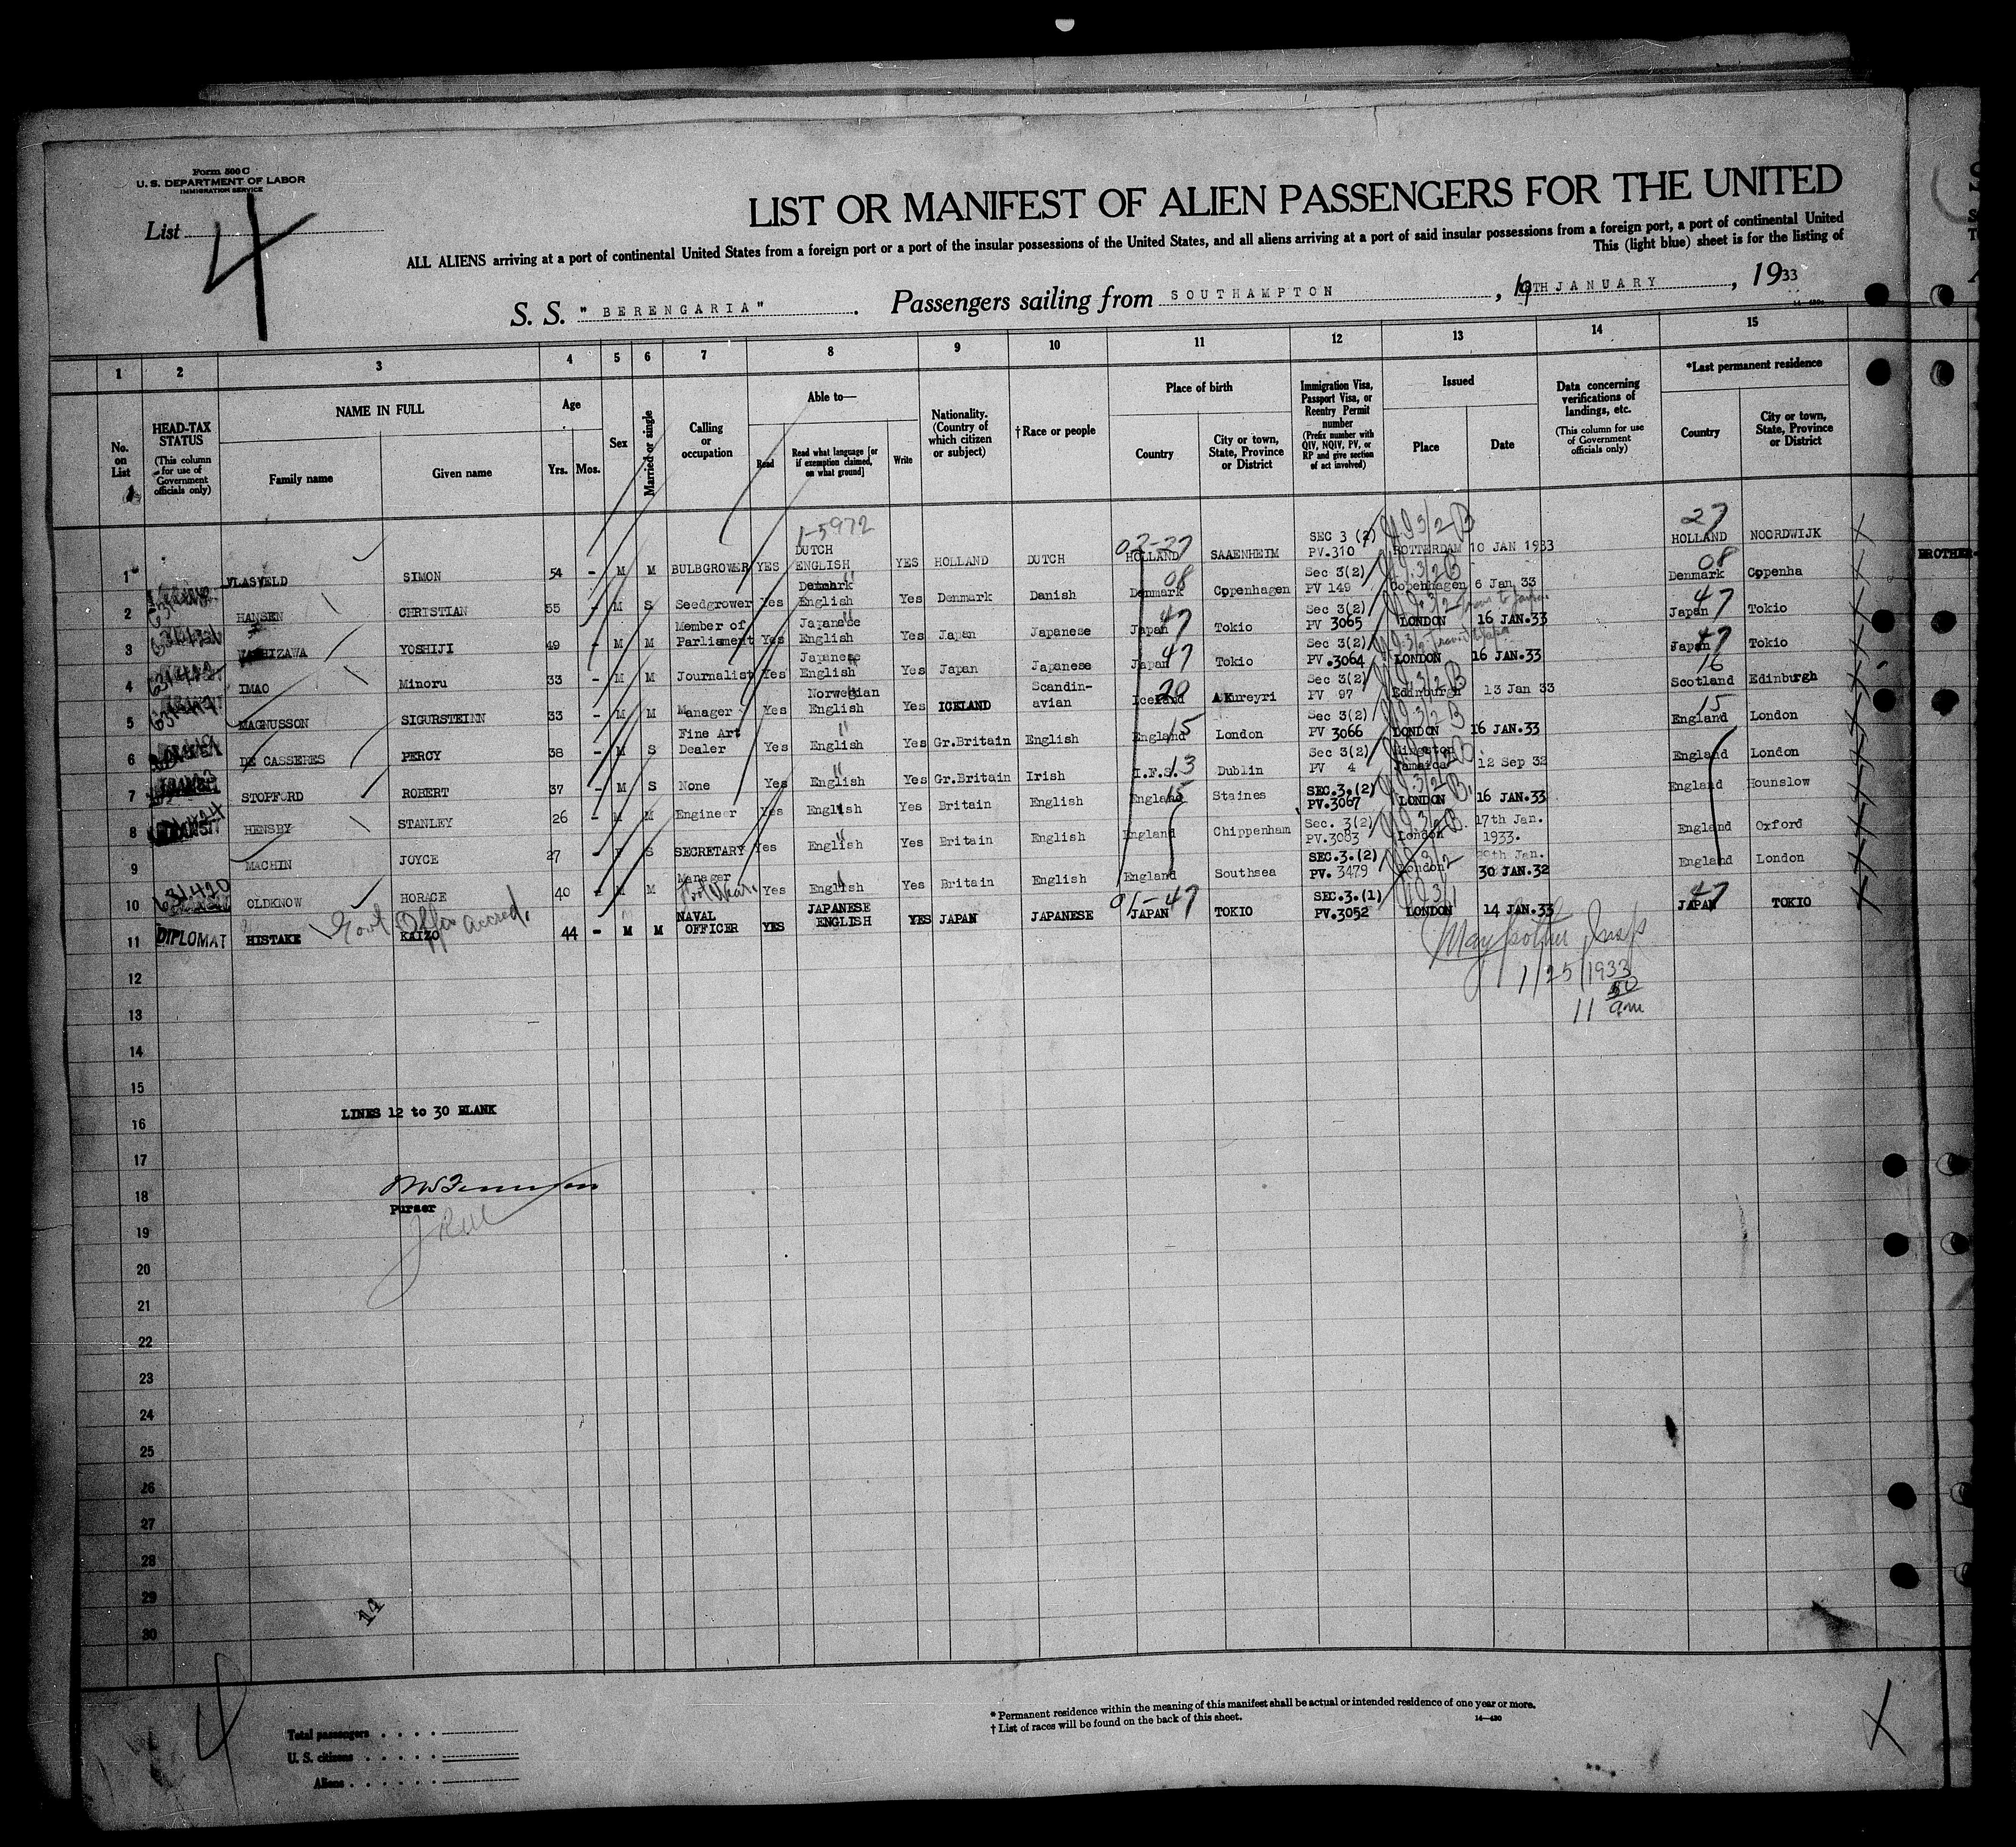 Form 500 C
U. S. DEPARTMENT OF LABOR
IMMIGRATION SERVICE
List 4
LIST OR MANIFEST OF ALIEN PASSENGERS FOR THE UNITED
ALL ALIENS arriving at a port of continental United States from a foreign port or a port of the insular possessions of the United States, and all aliens arriving at a port of said insular possessions from a foreign port, a port of continental United
This (light blue) sheet is for the listing of
S. S. "BERENGARIA". Passengers sailing from SOUTHAMPTON, 19TH JANUARY, 1933
1 2 3 4 5 6 7 8 9 10 11 12 13 14 15
No. on List
HEAD-TAX STATUS (This column for use of Government officials only)
NAME IN FULL
Family name
Given name
Age
Yrs. Mos.
Sex
Married or single
Calling or occupation
Able to—
Read
Read what language [or if exemption claimed, on what ground]
Write
Nationality. (Country of which citizen or subject)
† Race or people
Place of birth
Country
City or town, State, Province or District
Immigration Visa, Passport Visa, or Reentry Permit number (Prefix number with QIV, NQIV, PV, or RP and give section of act involved)
Issued
Place
Date
Data concerning verifications of landings, etc. (This column for use of Government officials only)
*Last permanent residence
Country
City or town, State, Province or District
1-5972
1 VLASVELD SIMON 54 - M M BULBGROWER YES DUTCH ENGLISH YES HOLLAND DUTCH HOLLAND SAAENHEIM SEC 3 (2) PV.310 ROTTERDAM 10 JAN 1933 27 HOLLAND NOORDWIJK
2 HANSEN CHRISTIAN 55 - M S Seedgrower Yes Denmark English Yes Denmark Danish Denmark 08 Copenhagen Sec 3(2) PV 149 Copenhagen 6 Jan 33 08 Denmark Coppenha
3 YOSHIJI 49 - M M Member of Parliament Yes Japanese English Yes Japan Japanese Japan 47 Tokio Sec 3(2) PV 3065 LONDON 16 JAN.33 Japan 47 Tokio
4 IMAO Minoru 33 - M M Journalist Yes Japanese English Yes Japan Japanese Japan 47 Tokio Sec 3(2) PV.3064 LONDON 16 JAN.33 Japan 47 Tokio
5 MAGNUSSON SIGURSTEINN 33 - M M Manager Yes Norwegian English Yes ICELAND Scandin-avian Iceland 20 Akureyri Sec 3(2) PV 97 Edinburgh 13 Jan 33 16 Scotland Edinburgh
6 DE CASSERES PERCY 38 - M S Fine Art Dealer Yes English Yes Gr.Britain English England 15 London Sec 3(2) PV 3066 LONDON 16 JAN.33 15 England London
7 STOPFORD ROBERT 37 - M S None Yes English Yes Gr.Britain Irish I.F.S. 13 Dublin Sec 3(2) PV 4 Kingston Jamaica 12 Sep 32 England London
8 HENSBY STANLEY 26 - M M Engineer Yes English Yes Britain English England 15 Staines SEC.3.(2) PV.3067 LONDON 16 JAN.33 England Hounslow
9 MACHIN JOYCE 27 - F S SECRETARY Yes English Yes Britain English England Chippenham Sec. 3(2) PV.3083 London 17th Jan. 1933. England Oxford
10 OLDKNOW HORACE 40 - M M Manager Yes English Yes Britain English England Southsea SEC.3.(2) PV. 3479 London 30 JAN.32 England London
Govt Offic accred.
11 DIPLOMAT HISTAKE KAIZO 44 - M M NAVAL OFFICER YES JAPANESE ENGLISH YES JAPAN JAPANESE JAPAN 47 TOKIO SEC.3.(1) PV.3052 LONDON 14 JAN.33 47 JAPAN TOKIO
BROTHER-
12
1/25/1933
13
11 50 am
14
15
LINES 12 to 30 BLANK
16
17
18
Purser
19
20
21
22
23
24
25
26
27
28
29
14
30
4
Total passengers
U. S. citizens
Aliens
* Permanent residence within the meaning of this manifest shall be actual or intended residence of one year or more.
† List of races will be found on the back of this sheet.
14—430
X